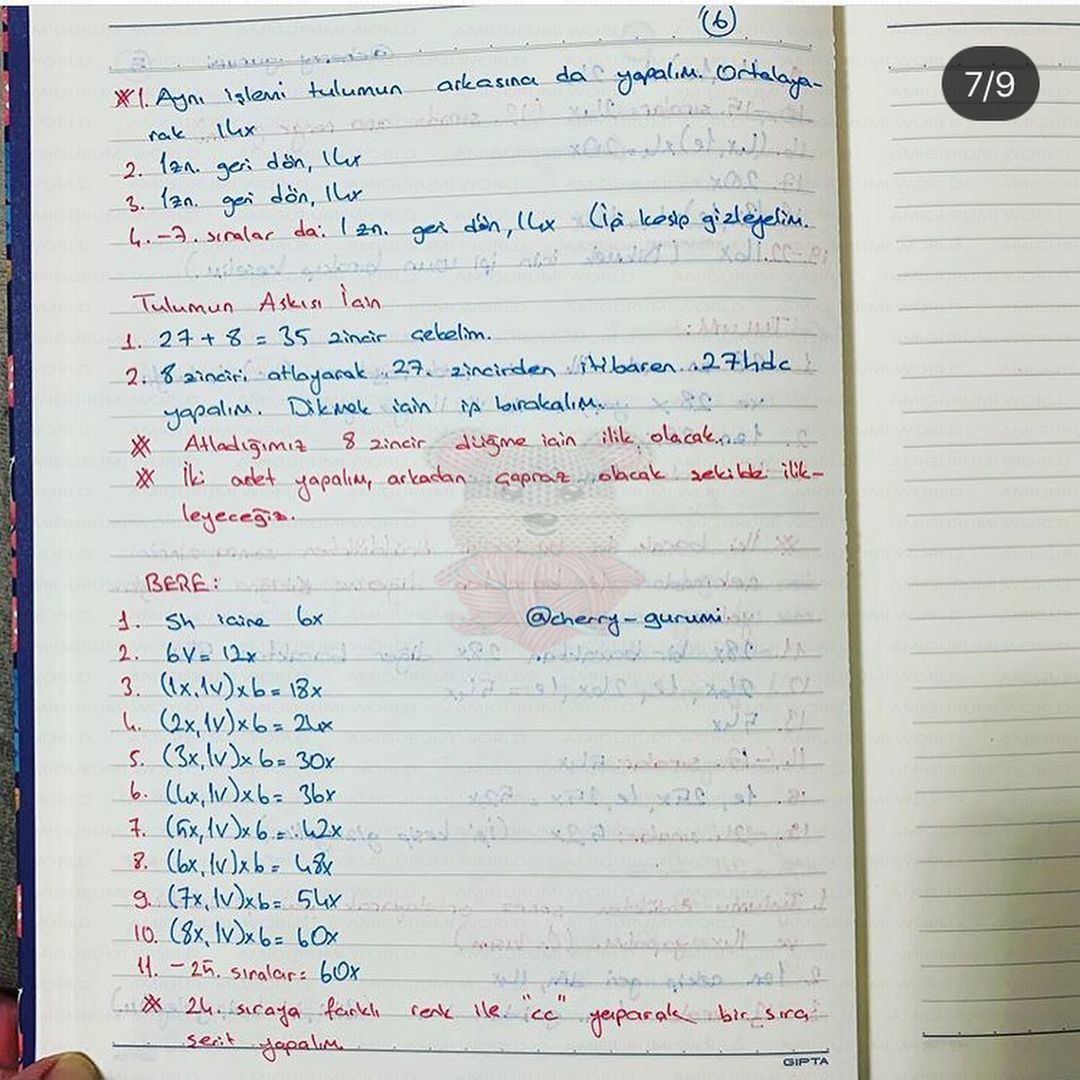 (6)
7/9
※1. Aynı işlemi tulumun arkasına da yapalım. Ortalaya-
rak 14x
2. 1zn. geri dön, 14x
3. 1zn. geri dön, 14x
4.-7. sıralar da: 1 zn. geri dön, 14x (İpi kesip gizleyelim.
Tulumun Askısı İçin
1. 27 + 8 = 35 zincir çekelim.
2. 8 zinciri atlayarak 27. zincirden itibaren 27hdc
yapalım. Dikmek için ip bırakalım.
※ Atladığımız 8 zincir düğme için ilik olacak.
※ İki adet yapalım, arkadan çapraz olacak şekilde ilik-
leyeceğiz.
BERE:
1. Sh içine 6x @cherry-gurumi
2. 6V= 12x
3. (1x,1v)x6= 18x
4. (2x,1v)x6= 24x
5. (3x,1v)x6= 30x
6. (4x,1v)x6= 36x
7. (5x,1v)x6= 42x
8. (6x,1v)x6= 48x
9. (7x,1v)x6= 54x
10. (8x,1v)x6= 60x
11. -25. sıralar: 60x
※ 24. sıraya farklı renk ile "cc" yaparak bir sıra
şerit yapalım.
GIPTA
AMIGURUMI WORLD